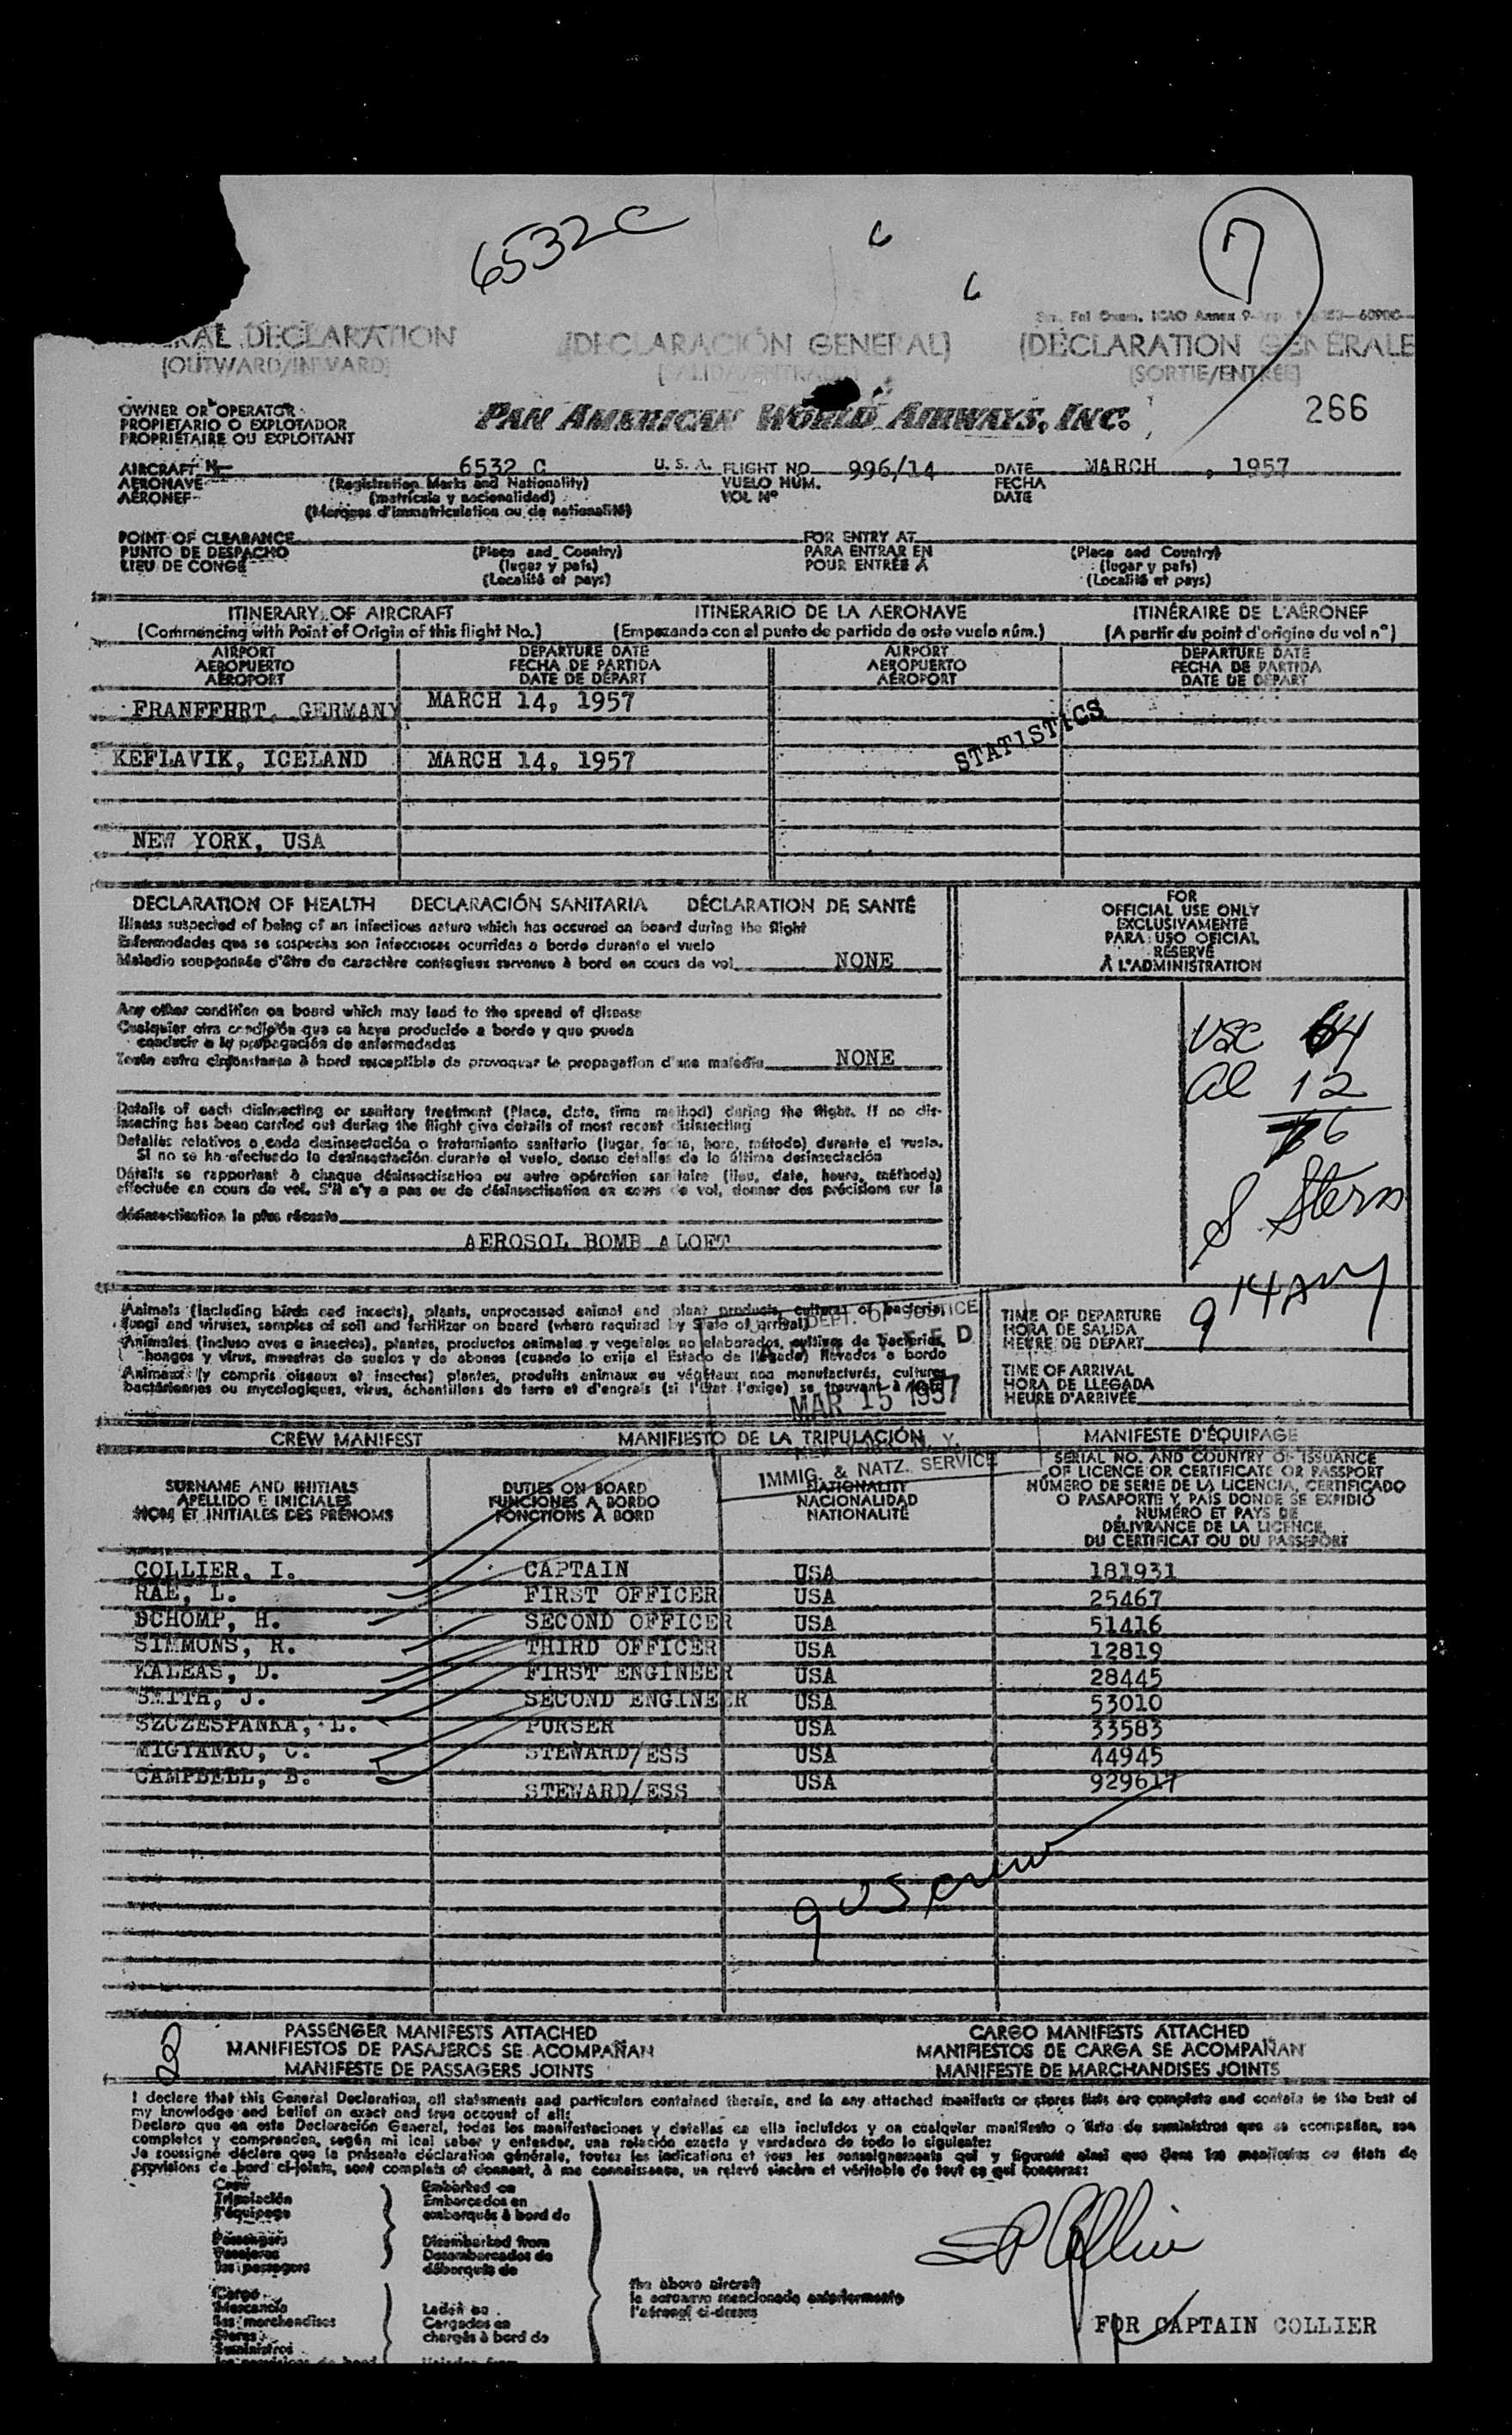 6532C
6
7
6
RAL DECLARATION (DECLARACIÓN GENERAL) (DÉCLARATION GÉNÉRALE
(OUTWARD/INWARD) (SORTIE/ENTRÉE)
OWNER OR OPERATOR
PROPIETARIO O EXPLOTADOR
PROPRIÉTAIRE OU EXPLOITANT
PAN AMERICAN WORLD AIRWAYS, INC.
266
AIRCRAFT N 6532 C U. S. A. FLIGHT NO. 996/14 DATE MARCH , 1957
AERONAVE (Registration Marks and Nationality) VUELO NÚM. FECHA
AÉRONEF (matrícula y nacionalidad) VOL Nº DATE
(Marques d'immatriculation ou de nationalité)
POINT OF CLEARANCE FOR ENTRY AT
PUNTO DE DESPACHO (Place and Country) PARA ENTRAR EN (Place and Country)
LIEU DE CONGÉ (lugar y país) POUR ENTRÉE À (lugar y país)
(Localité et pays) (Localité et pays)
ITINERARY OF AIRCRAFT ITINERARIO DE LA AERONAVE ITINÉRAIRE DE L'AÉRONEF
(Commencing with Point of Origin of this flight No.) (Empezando con el punto de partida de este vuelo núm.) (A partir du point d'origine du vol nº)
AIRPORT DEPARTURE DATE AIRPORT DEPARTURE DATE
AEROPUERTO FECHA DE PARTIDA AEROPUERTO FECHA DE PARTIDA
AÉROPORT DATE DE DÉPART AÉROPORT DATE DE DÉPART
FRANFFHRT, GERMANY MARCH 14, 1957
STATISTICS
KEFLAVIK, ICELAND MARCH 14, 1957
NEW YORK, USA
DECLARATION OF HEALTH DECLARACIÓN SANITARIA DÉCLARATION DE SANTÉ
Illness suspected of being of an infectious nature which has occured on board during the flight
Enfermedades que se sospecha son infecciosas ocurridas a bordo durante el vuelo
Maladie soupçonnée d'être de caractère contagieux survenue à bord en cours de vol NONE
Any other condition on board which may lead to the spread of disease
Cualquier otra condición que se haya producido a bordo y que pueda
conducir a la propagación de enfermedades
Toute autre circonstance à bord susceptible de provoquer la propagation d'une maladie NONE
Details of each disinsecting or sanitary treatment (Place, date, time method) during the flight. If no dis-
insecting has been carried out during the flight give details of most recent disinsecting
Detalles relativos a cada desinsectación o tratamiento sanitario (lugar, fecha, hora, método) durante el vuelo.
Si no se ha efectuado la desinsectación durante el vuelo, dense detalles de la última desinsectación
Détails se rapportant à chaque désinsectisation ou autre opération sanitaire (lieu, date, heure, méthode)
effectuée en cours de vol. S'il n'y a pas eu de désinsectisation en cours de vol, donner des précisions sur la
désinsectisation la plus récente
AEROSOL BOMB ALOFT
FOR
OFFICIAL USE ONLY
EXCLUSIVAMENTE
PARA USO OFICIAL
RÉSERVÉ
À L'ADMINISTRATION
USC 64
al 12
76
S Stern
Animals (including birds and insects), plants, unprocessed animal and plant products, cultures of bacteria,
fungi and viruses, samples of soil and fertilizer on board (where required by State of arrival)
Animales (incluso aves e insectos), plantas, productos animales y vegetales no elaborados, cultivos de bacterias,
hongos y virus, muestras de suelos y de abonos (cuando lo exija el Estado de llegada) llevados a bordo
Animaux (y compris oiseaux et insectes) plantes, produits animaux ou végétaux non manufacturés, cultures
bactériennes ou mycologiques, virus, échantillons de terre et d'engrais (si l'État l'exige) se trouvant à bord
DEPT. OF JUSTICE
MAR 15 1957
N. Y.
IMMIG. & NATZ. SERVICE
TIME OF DEPARTURE
HORA DE SALIDA
HEURE DE DÉPART
914AM
TIME OF ARRIVAL
HORA DE LLEGADA
HEURE D'ARRIVÉE
CREW MANIFEST MANIFIESTO DE LA TRIPULACIÓN MANIFESTE D'ÉQUIPAGE
SURNAME AND INITIALS
APELLIDO E INICIALES
NOM ET INITIALES DES PRÉNOMS
DUTIES ON BOARD
FUNCIONES A BORDO
FONCTIONS À BORD
NATIONALITY
NACIONALIDAD
NATIONALITÉ
SERIAL NO. AND COUNTRY OF ISSUANCE
OF LICENCE OR CERTIFICATE OR PASSPORT
NÚMERO DE SERIE DE LA LICENCIA, CERTIFICADO
O PASAPORTE Y PAÍS DONDE SE EXPIDIÓ
NUMÉRO ET PAYS DE
DÉLIVRANCE DE LA LICENCE,
DU CERTIFICAT OU DU PASSEPORT
COLLIER, I. CAPTAIN USA 181931
RAE, L. FIRST OFFICER USA 25467
SCHOMP, H. SECOND OFFICER USA 51416
SIMMONS, R. THIRD OFFICER USA 12819
KALEAS, D. FIRST ENGINEER USA 28445
SMITH, J. SECOND ENGINEER USA 53010
SZCZESPANKA, L. PURSER USA 33583
MIGIANKO, C. STEWARD/ESS USA 44945
CAMPBELL, B. STEWARD/ESS USA 929617
9 US crew
3
PASSENGER MANIFESTS ATTACHED CARGO MANIFESTS ATTACHED
MANIFIESTOS DE PASAJEROS SE ACOMPAÑAN MANIFIESTOS DE CARGA SE ACOMPAÑAN
MANIFESTE DE PASSAGERS JOINTS MANIFESTE DE MARCHANDISES JOINTS
I declare that this General Declaration, all statements and particulars contained therein, and in any attached manifests or stores lists are complete and contain to the best of
my knowledge and belief an exact and true account of all:
Declaro que en esta Declaración General, todas las manifestaciones y detalles en ella incluídos y en cualquier manifiesto o lista de suministros que se acompañan, son
completos y comprenden, según mi leal saber y entender, una relación exacta y verdadera de todo lo siguiente:
Je soussigné déclare que la présente déclaration générale, toutes les indications et tous les renseignements qui y figurent ainsi que dans les manifestes ou états de
provisions de bord ci-joints, sont complets et donnent, à ma connaissance, un relevé sincère et véritable de tout ce qui concerne:
Crew
Tripulación
l'équipage
Embarked on
Embarcados en
embarqués à bord de
Passengers
Pasajeros
les passagers
Disembarked from
Desembarcados de
débarqués de
Cargo
Mercancía
les marchandises
Stores
Suministros
Laden on
Cargados en
chargés à bord de
the above aircraft
la aeronave mencionada anteriormente
l'aéronef ci-dessus
FOR CAPTAIN COLLIER